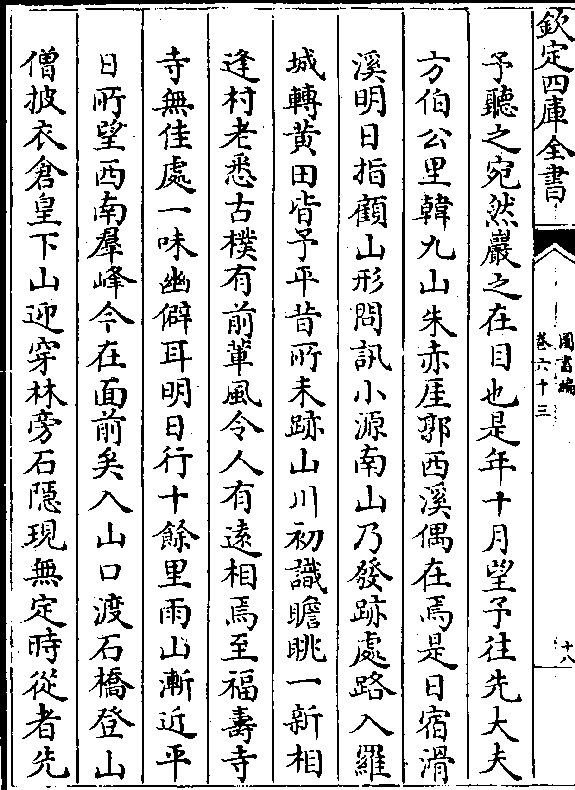 欽定四庫全書
圖書編
卷六十三
十八
予聽之宛然巖之在目也是年十月望予往先大夫
方伯公里韓九山朱赤厓郭西溪偶在焉是日宿滑
溪明日指顧山形問訊小源南山乃發跡處路入羅
城轉黄田皆予平昔所未跡山川初識瞻眺一新相
逢村老悉古樸有前輩風令人有遠相焉至福壽寺
寺無佳處一味幽僻耳明日行十餘里雨山漸近平
日所望西南羣峰今在面前矣入山口渡石橋登山
僧披衣倉皇下山迎穿林旁石隱現無定時從者先